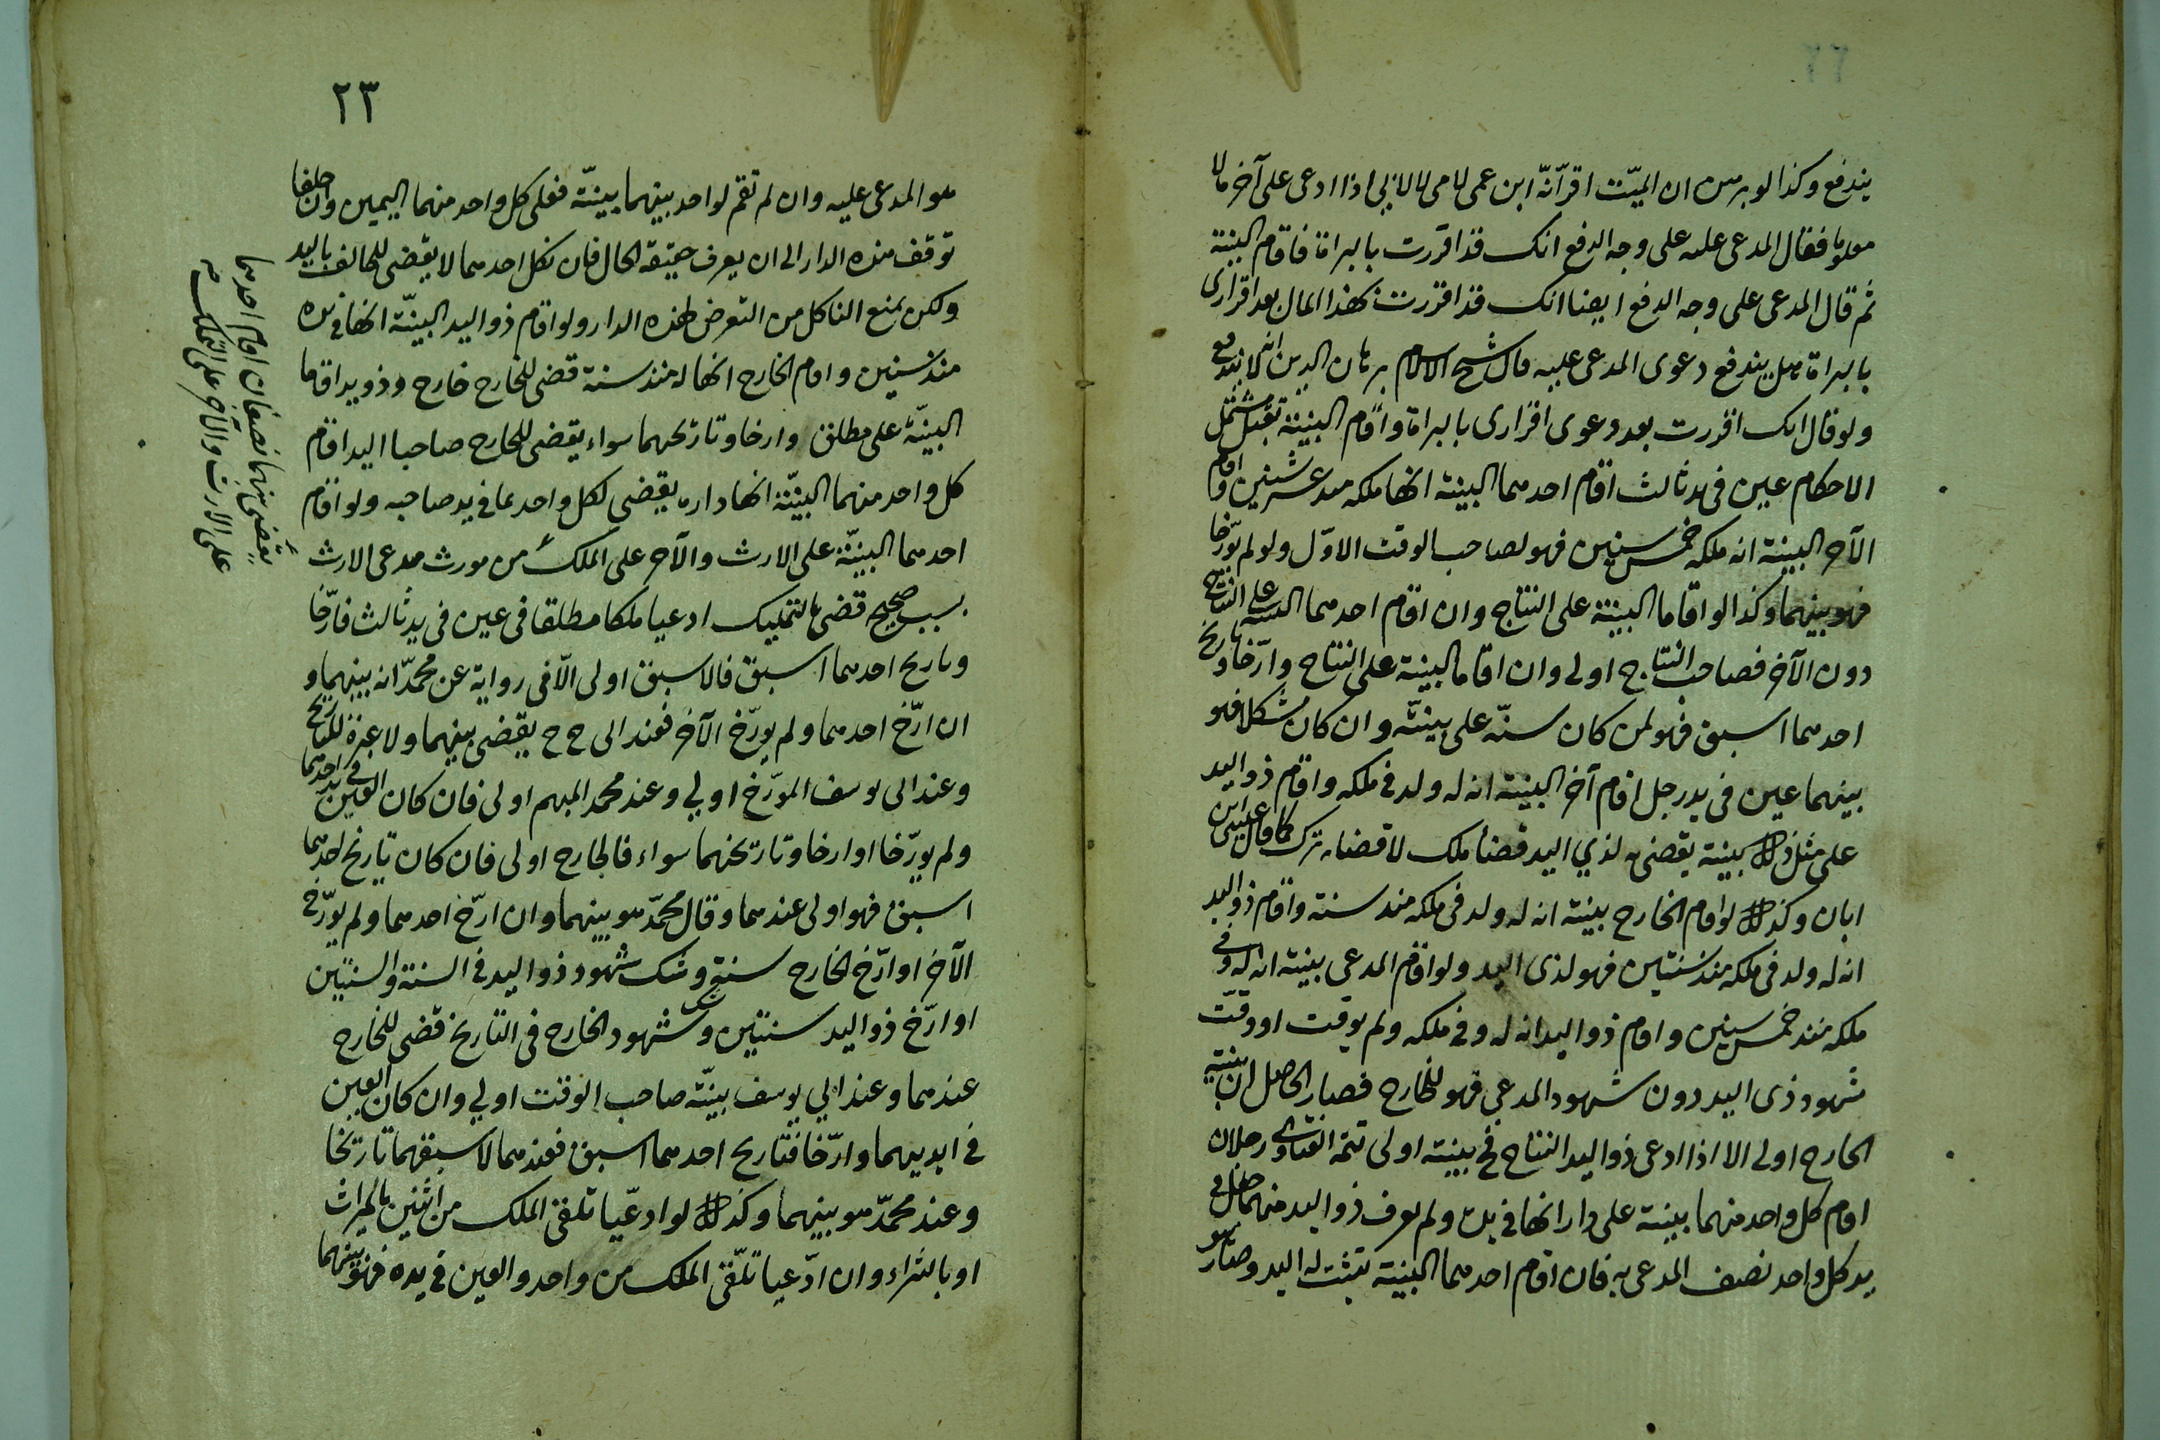 يندفع وكذا لو برهن ان الميّت اقرّ انّه ابن عمى لامى لا لابى اذا ادعى على آخر مالا
معلوما فقال المدعى عليه على وجه الدفع انك قد اقررت بالبراة فاقام البينة
ثم قال المدعى على وجه الدفع ايضا انك قد اقررت بهذا المال بعد اقرارى
بالبراة هل يندفع دعوى المدعى عليه قال شيخ الاسلام برهان الدين انه لا يندفع
ولو قال انك اقررت بعد دعوى اقرارى بالبراة واقام البينة تقبل مشتمل
الاحكام عين فى يد ثالث اقام احدهما البينة انها ملكه منذ عشر سنين واقام
الآخر البينة انه ملكه خمس سنين فهو لصاحب الوقت الاوّل ولو لم يؤرّخا
فهو بينهما وكذا لو اقاما البينة على النتاج وان اقام احدهما البينة على النتاج
دون الآخر فصاحب النتاج اولى وان اقاما البينة على النتاج وارّخا وتاريخ
احدهما اسبق فهو لمن كان سنّه على بينته وان كان مشكلا فهو
بينهما عين فى يد رجل اقام آخر البينة انه له ولد فى ملكه واقام ذو اليد
على مثل ذلك بينة يقضى به لذي اليد قضاء ملك لا قضاء ترك كما قال عيسى ابن
ابان وكذلك لو اقام الخارج بينة انه له ولد فى ملكه منذ سنة واقام ذو اليد
انه له ولد فى ملكه منذ سنتين فهو لذى اليد ولو اقام المدعى بينة انه له وفى
ملكه منذ خمس سنين واقام ذو اليد انه له وفى ملكه ولم يوقت او وقّت
شهود ذى اليد دون شهود المدعي فهو للخارج فصار الحاصل ان بينة
الخارج اولى الا اذا ادعى ذو اليد النتاج فح بينته اولى تتمة الفتاوى رجلان
اقام كل واحد منهما بينة على دار انها فى يده ولم يعرف ذو اليد منهما جعل فى
يد كل واحد نصف المدعى به فان اقام احدهما البينة تثبت له اليد وصار
٢٣
هو المدعى عليه وان لم تقم لواحد بينهما بيّنة فعلى كل واحد منهما اليمين وان حلفا
توقف هذه الدار الى ان يعرف حقيقة الحال فان نكل احدهما لا يقضى للحالف باليد
ولكن يمنع الناكل من التعرض لهذه الدار ولو اقام ذو اليد البينّة انها فى يده
منذ سنين واقام الخارج انها له منذ سنة قضى للخارج خارج وذو يد اقاما
البينّة على مطلق وارخا وتاريخهما سواء يقضى للخارج صاحبا اليد اقام
كل واحد منهما البيّنة انها داره يقضى لكل واحد بما فى يد صاحبه ولو اقام
احدهما البينّة على الارث والآخر على الملك من مورث مدعى الارث
بسبب صحيح قضى بالتمليك ادعيا ملكا مطلقا فى عين فى يد ثالث فارّخا
وتاريخ احدهما اسبق فالاسبق اولى الّا فى رواية عن محمّد انه بينهما و
ان ارّخ احدهما ولم يورّخ الآخر فعند ابى ح ح يقضى بينهما ولا عبرة للتاريخ
وعند ابى يوسف المورّخ اولي وعند محمد المبهم اولى فان كان العين فى يد احدهما
ولم يورّخا او ارخا وتاريخهما سواء فالخارج اولى فان كان تاريخ احدهما
اسبق فهو اولى عندهما وقال محمّد هو بينهما وان ارّخ احدهما ولم يورّخ
الآخر او ارّخ الخارج سنة وشك شهود ذو اليد فى السنة والسنتين
او ارّخ ذو اليد سنتين وشك شهود الخارج فى التاريخ قضى للخارج
عندهما وعند ابي يوسف بينّة صاحب الوقت اولي وان كان العين
فى ايديهما وارّخا فتاريخ احدهما اسبق فعندهما لاسبقهما تاريخا
وعند محمّد هو بينهما وكذلك لو ادعّيا تلقى الملك من اثنين بالميراث
او بالشراء وان ادّعيا تلّقى الملك من واحد والعين فى يده فهو بينهما
يقضى بينهما نصفان اقام احدهما
على الارث والآخر على الملك م